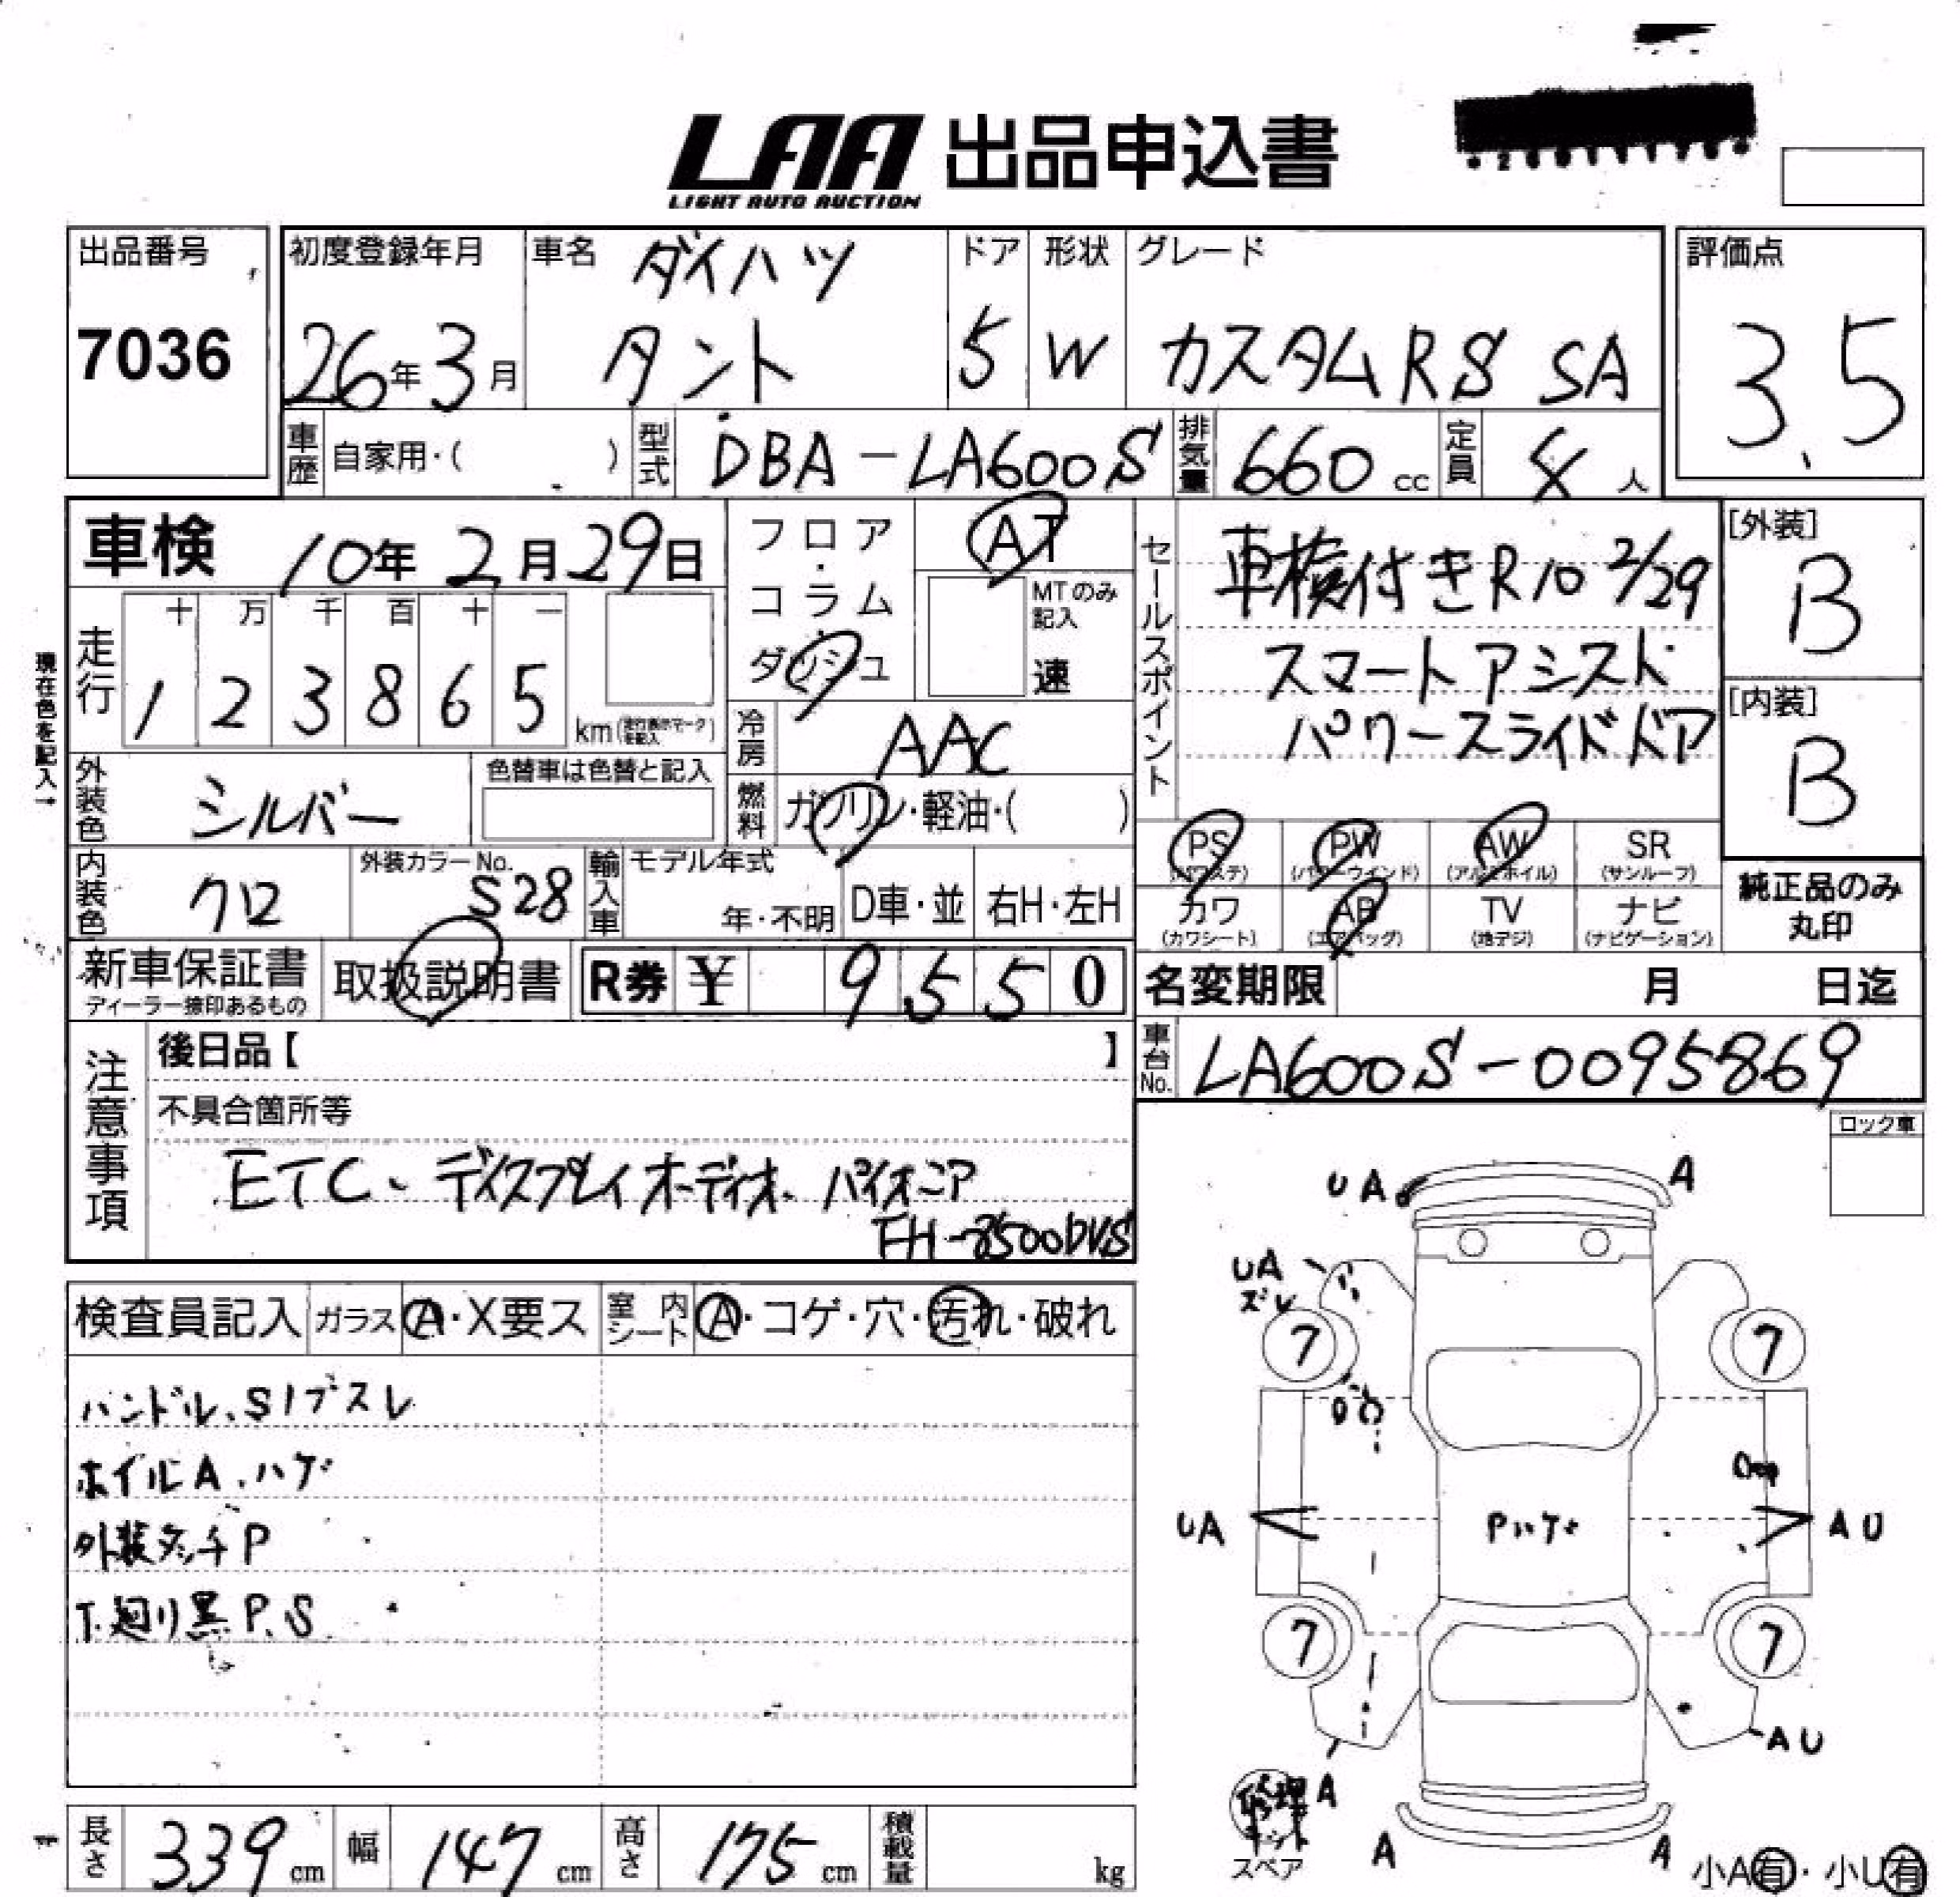 LAA 出品申込書
LIGHT AUTO AUCTION
出品番号
7036
初度登録年月
26年3月
車名 ダイハツ
タント
ドア
5
形状
W
グレード
カスタムRS SA
評価点
3.5
車歴 自家用・( )
型式 DBA-LA600S
排気量 660 cc
定員 4 人
車検 10年 2月 29日
フロア・コラム・ダッシュ
AT
MTのみ記入
速
セールスポイント
車検付きR10 2/29
スマートアシスト
パワースライドドア
[外装]
B
[内装]
B
現在色を記入→
走行 十 万 千 百 十 一
1 2 3 8 6 5 km
冷房 AAC
外装色 シルバー
色替車は色替と記入
燃料 ガソリン・軽油・( )
PS (パワステ) PW (パワーウインド) AW (アルミホイル) SR (サンルーフ)
カワ (カワシート) AB (エアバッグ) TV (地デジ) ナビ (ナビゲーション)
純正品のみ
丸印
内装色 クロ
外装カラーNo. S28
輸入車 モデル年式
年・不明 D車・並 右H・左H
新車保証書
ディーラー捺印あるもの
取扱説明書
R券 ¥ 9 5 5 0
名変期限 月 日迄
車台No. LA600S-0095869
注意事項
後日品【 】
不具合箇所等
ETC、ディスプレイオーディオ、パイオニア
FH-8500DVS
ロック車
検査員記入 ガラス A・X要ス 室内シート A・コゲ・穴・汚れ・破れ
ハンドル、Sノブスレ
ホイルA、ハゲ
外装タッチP
下廻り黒P、S
UA A
UA
ズレ
7 7
UA Pハゲ AU
7 7
AU
修理
キット
スペア
A
A A
小A有・小U有
長さ 339 cm 幅 147 cm 高さ 175 cm 積載量 kg